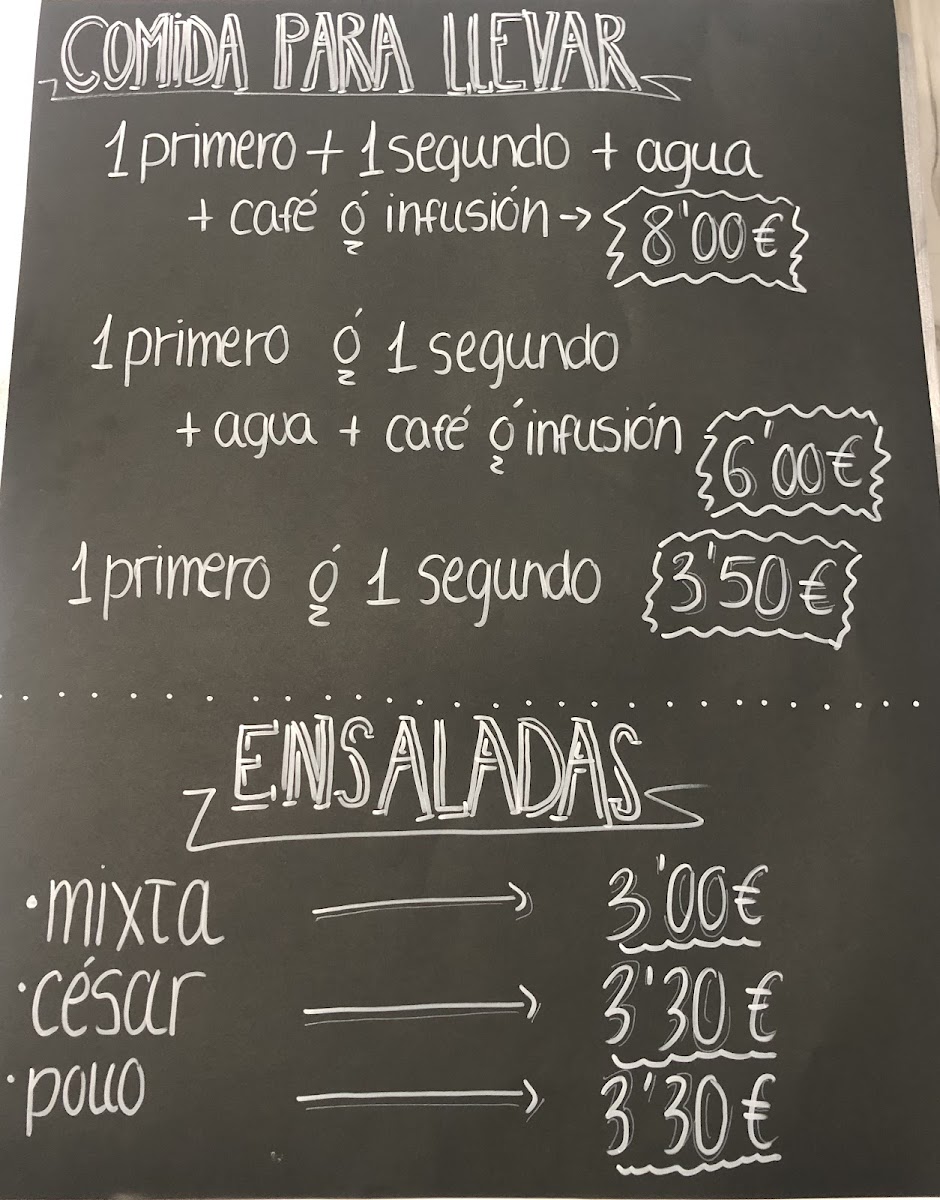 COMIDA PARA LLEVAR
1 primero + 1 segundo + agua
+ café ó infusión → 8'00€
1 primero ó 1 segundo
+ agua + café ó infusión 6'00€
1 primero ó 1 segundo 3'50€
ENSALADAS
· mixta → 3'00€
· césar → 3'30€
· pollo → 3'30€